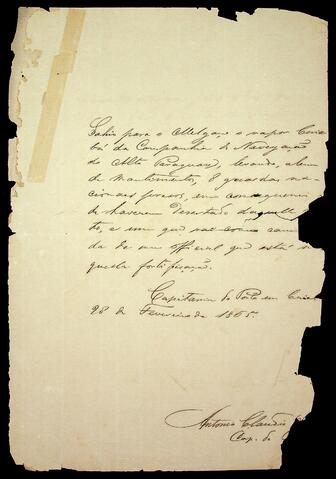 Sahio para o Melgaço o vapor Cuia
bá da Companhia de Navegação
do Alto Paraguay, levando, alem
de mantimentos, 8 guardas na
cionaes presos, em consequencia
de haverem desertado daquelle
to, e um que vai como cama
da de um official que está n
quella fortificação.
Capitania do Porto em Cuia
28 de Fevereiro de 1865.
Antonio Claudio
Cap. de